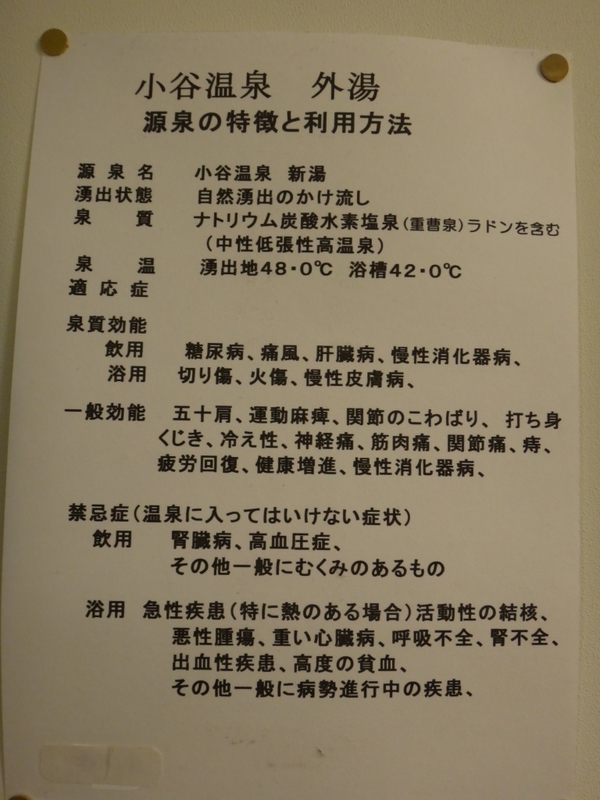 小谷温泉 外湯
源泉の特徴と利用方法
源泉名 小谷温泉 新湯
湧出状態 自然湧出のかけ流し
泉質 ナトリウム炭酸水素塩泉(重曹泉)ラドンを含む
(中性低張性高温泉)
泉温 湧出地48・0℃ 浴槽42・0℃
適応症
泉質効能
飲用 糖尿病、痛風、肝臓病、慢性消化器病、
浴用 切り傷、火傷、慢性皮膚病、
一般効能 五十肩、運動麻痺、関節のこわばり、打ち身
くじき、冷え性、神経痛、筋肉痛、関節痛、痔、
疲労回復、健康増進、慢性消化器病、
禁忌症(温泉に入ってはいけない症状)
飲用 腎臓病、高血圧症、
その他一般にむくみのあるもの
浴用 急性疾患(特に熱のある場合)活動性の結核、
悪性腫瘍、重い心臓病、呼吸不全、腎不全、
出血性疾患、高度の貧血、
その他一般に病勢進行中の疾患、